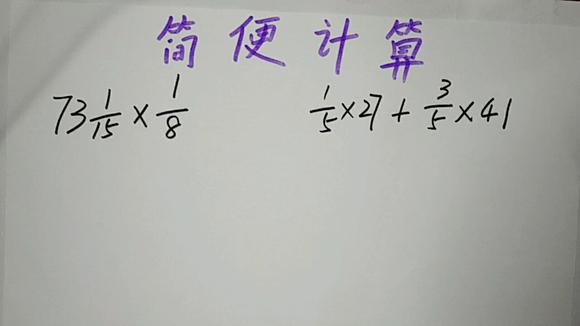 简便计算
73 1/15 × 1/8
1/5 × 27 + 3/5 × 41